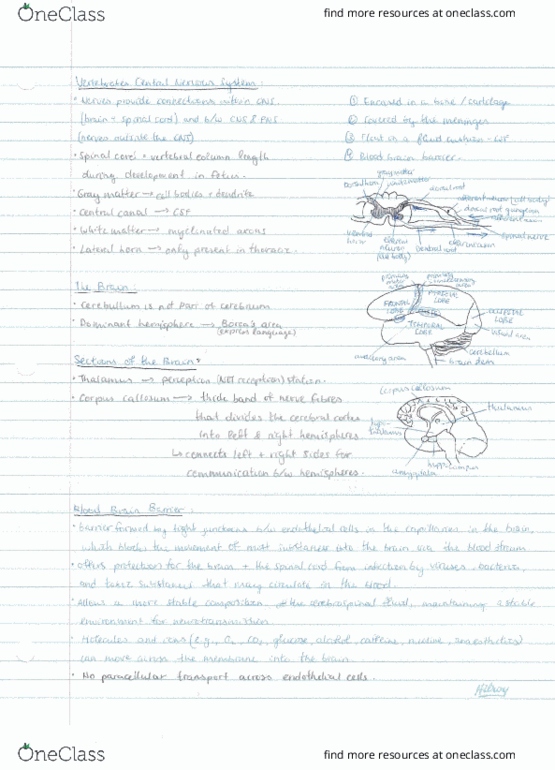 OneClass
find more resources at oneclass.com
Vertebrates Central Nervous System:
• Nerves provide connections within CNS
(brain + spinal cord) and b/w CNS & PNS
(nerves outside the CNS)
• Spinal cord = vertebral column length
during development in fetus.
• Gray matter → cell bodies + dendrite
• Central canal → CSF
• White matter → myelinated axons
• Lateral horn → only present in thoracic.
① Encased in a bone / cartilage
② Covered by the meninges
③ Float in a fluid cushion - CSF
④ Blood brain barrier.
gray matter
white matter
dorsal root
dorsal root ganglion
spinal nerve
ventral root
The Brain:
• Cerebellum is not part of cerebrum
• Dominant hemisphere → Broca's area
(express language)
FRONTAL LOBE
PARIETAL LOBE
OCCIPITAL LOBE
TEMPORAL LOBE
visual area
cerebellum
brain stem
Sections of the Brain:
• Thalamus → perception (NOT reception) station.
• Corpus callosum → thick band of nerve fibres
that divides the cerebral cortex
into left & right hemispheres.
↳ connects left + right sides for
communication b/w hemispheres.
corpus callosum
thalamus
hypothalamus
hippocampus
amygdala
Blood Brain Barrier:
• barrier formed by tight junctions b/w endothelial cells in the capillaries in the brain,
which blocks the movement of most substances into the brain via the blood stream
• offers protection for the brain + the spinal cord from infection by viruses, bacteria,
and toxic substances that may circulate in the blood.
• Allows a more stable composition of the cerebrospinal fluid, maintaining a stable
environment for neurotransmitters
• Molecules and ions (e.g., O₂, CO₂, glucose, alcohol, caffeine, nicotine, anaesthetics)
can move across the membrane into the brain.
• No paracellular transport across endothelial cells.
Hilroy
OneClass
find more resources at oneclass.com